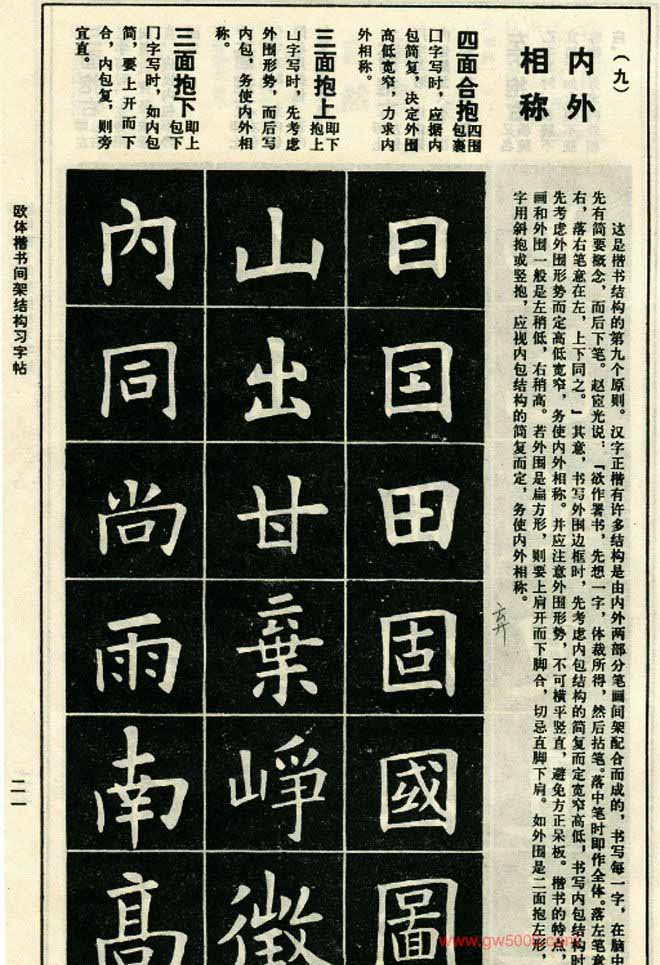 (九)
内外
相称
这是楷书结构的第九个原则。汉字正楷有许多结构是由内外两部分笔画间架配合而成的,书写每一字,在脑中
先有简要概念,而后下笔。赵宧光说:“欲作署书,先想一字,体裁所得,然后拈笔。落中笔时即作全体。落左笔意
右,落右笔意在左,上下同之。”其意,书写外围边框时,先考虑内包结构的简复而定宽窄高低,书写内包结构时
先考虑外围形势而定高低宽窄,务使内外相称。并应注意外围形势,不可横平竖直,避免方正呆板。楷书的特点,
画和外围一般是左稍低,右稍高。若外围是扁方形,则要上肩开而下脚合,切忌直脚下肩。如外围是二面抱左形,
字用斜抱或竖抱,应视内包结构的简复而定,务使内外相称。
四面合抱 四围包裹
囗字写时,应据内
包简复,决定外围
高低宽窄,力求内
外相称。
三面抱上 即下抱上
凵字写时,先考虑
外围形势,而后写
内包,务使内外相
称。
三面抱下 即上包下
冂字写时,如内包
简,要上开而下
合,内包复,则旁
宜直。
日
国
田
固
國
圖
山
出
甘
棄
崢
徵
内
同
尚
雨
南
高
弃
欧体楷书间架结构习字帖
二一